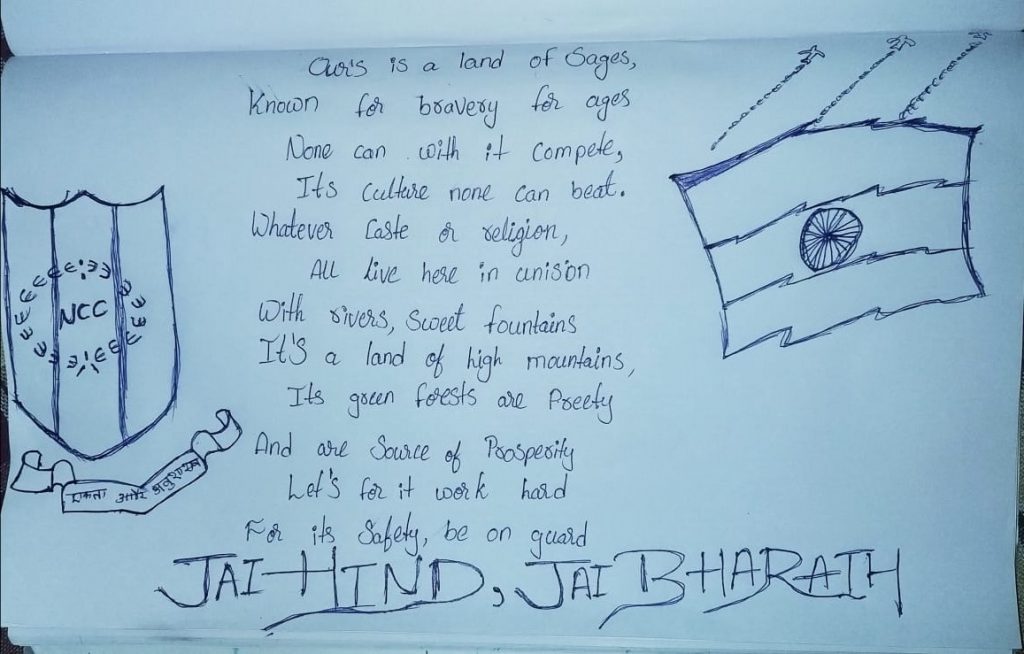 Our's is a land of Sages,
Known for bravery for ages
None can with it compete,
Its culture none can beat.
Whatever Caste or religion,
All live here in unison
With rivers, Sweet fountains
It's a land of high mountains,
Its green forests are Preety
And are Source of Prosperity
Let's for it work hard
For its Safety, be on guard
JAI HIND, JAI BHARATH
NCC
एकता और